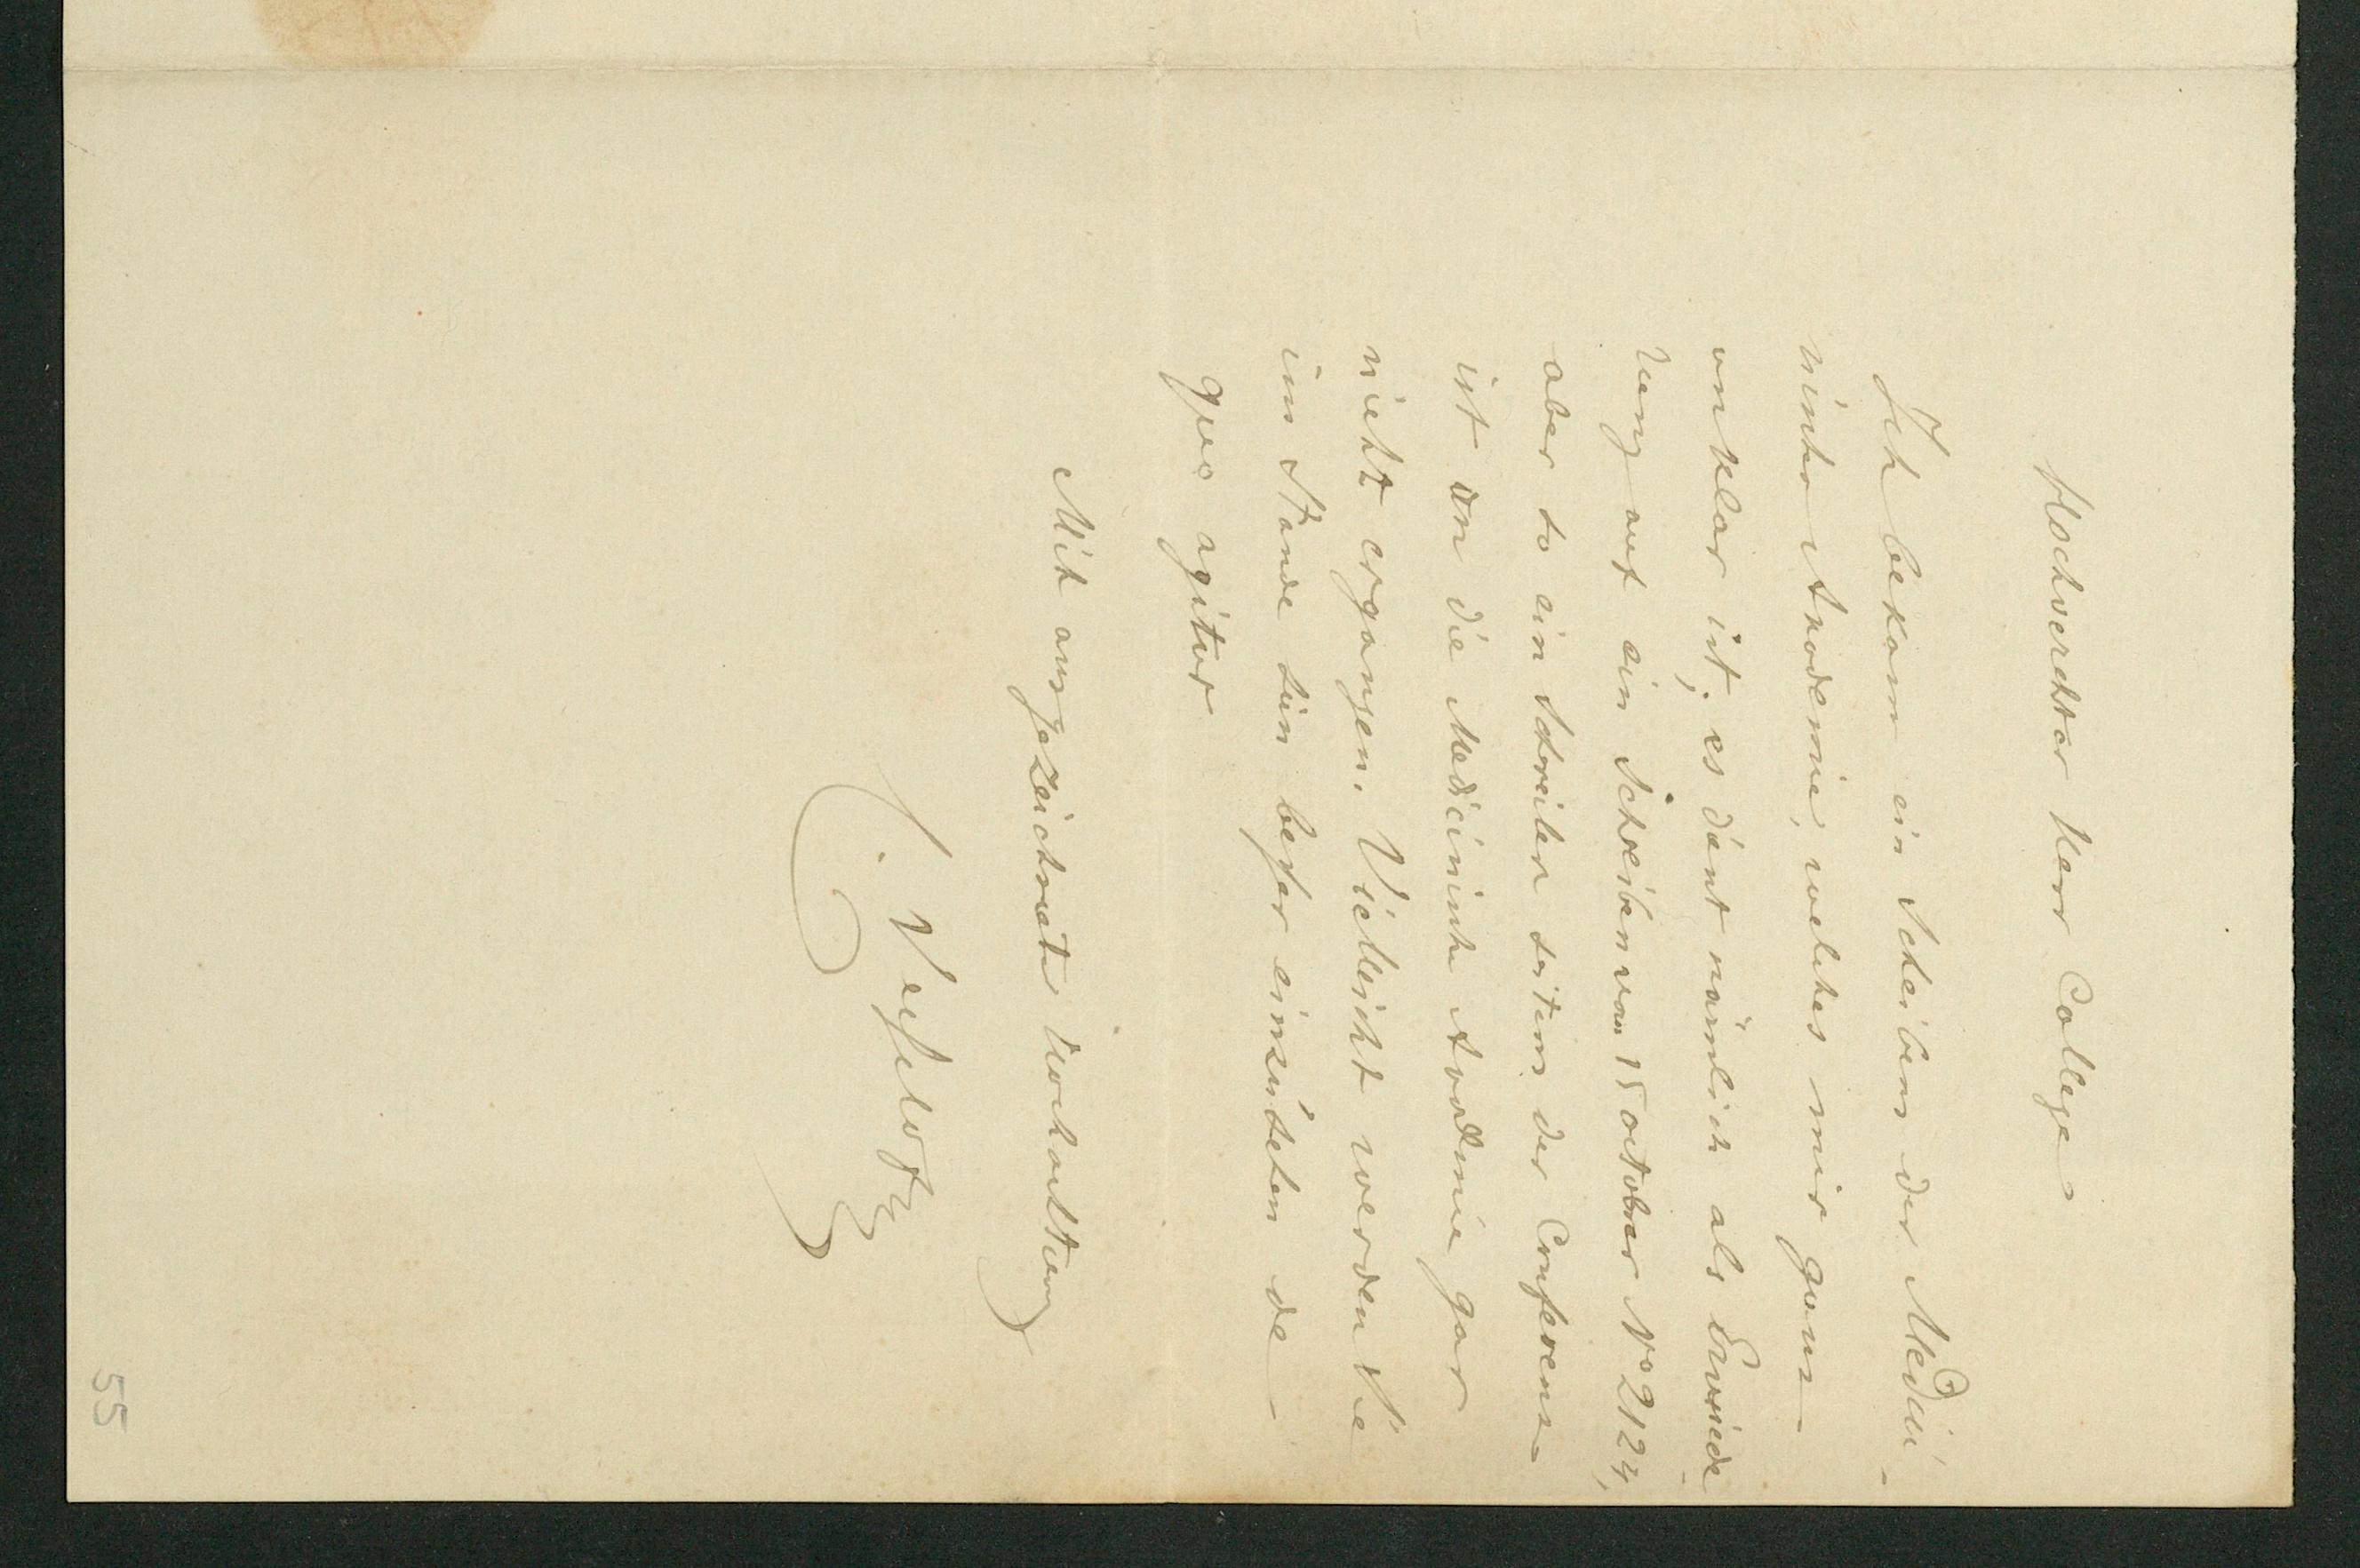 Hochverehrter Herr College
Ich bekam ein Scheiben der Medici-
nische Akademie, welches mir ganz
unklar ist; es dänt nämlich als Erwiede-
rung auf ein Schreiben vom 15 october No 2124,
aber so ein Schreiben seitens der Conferenz
ist an die Medicinische Akademie gar
nicht ergangen. Vielleicht werden Sie
im Stande sein besser einzusehen de
quo agitur
Mit ausgezeichneter Hochachtung
55